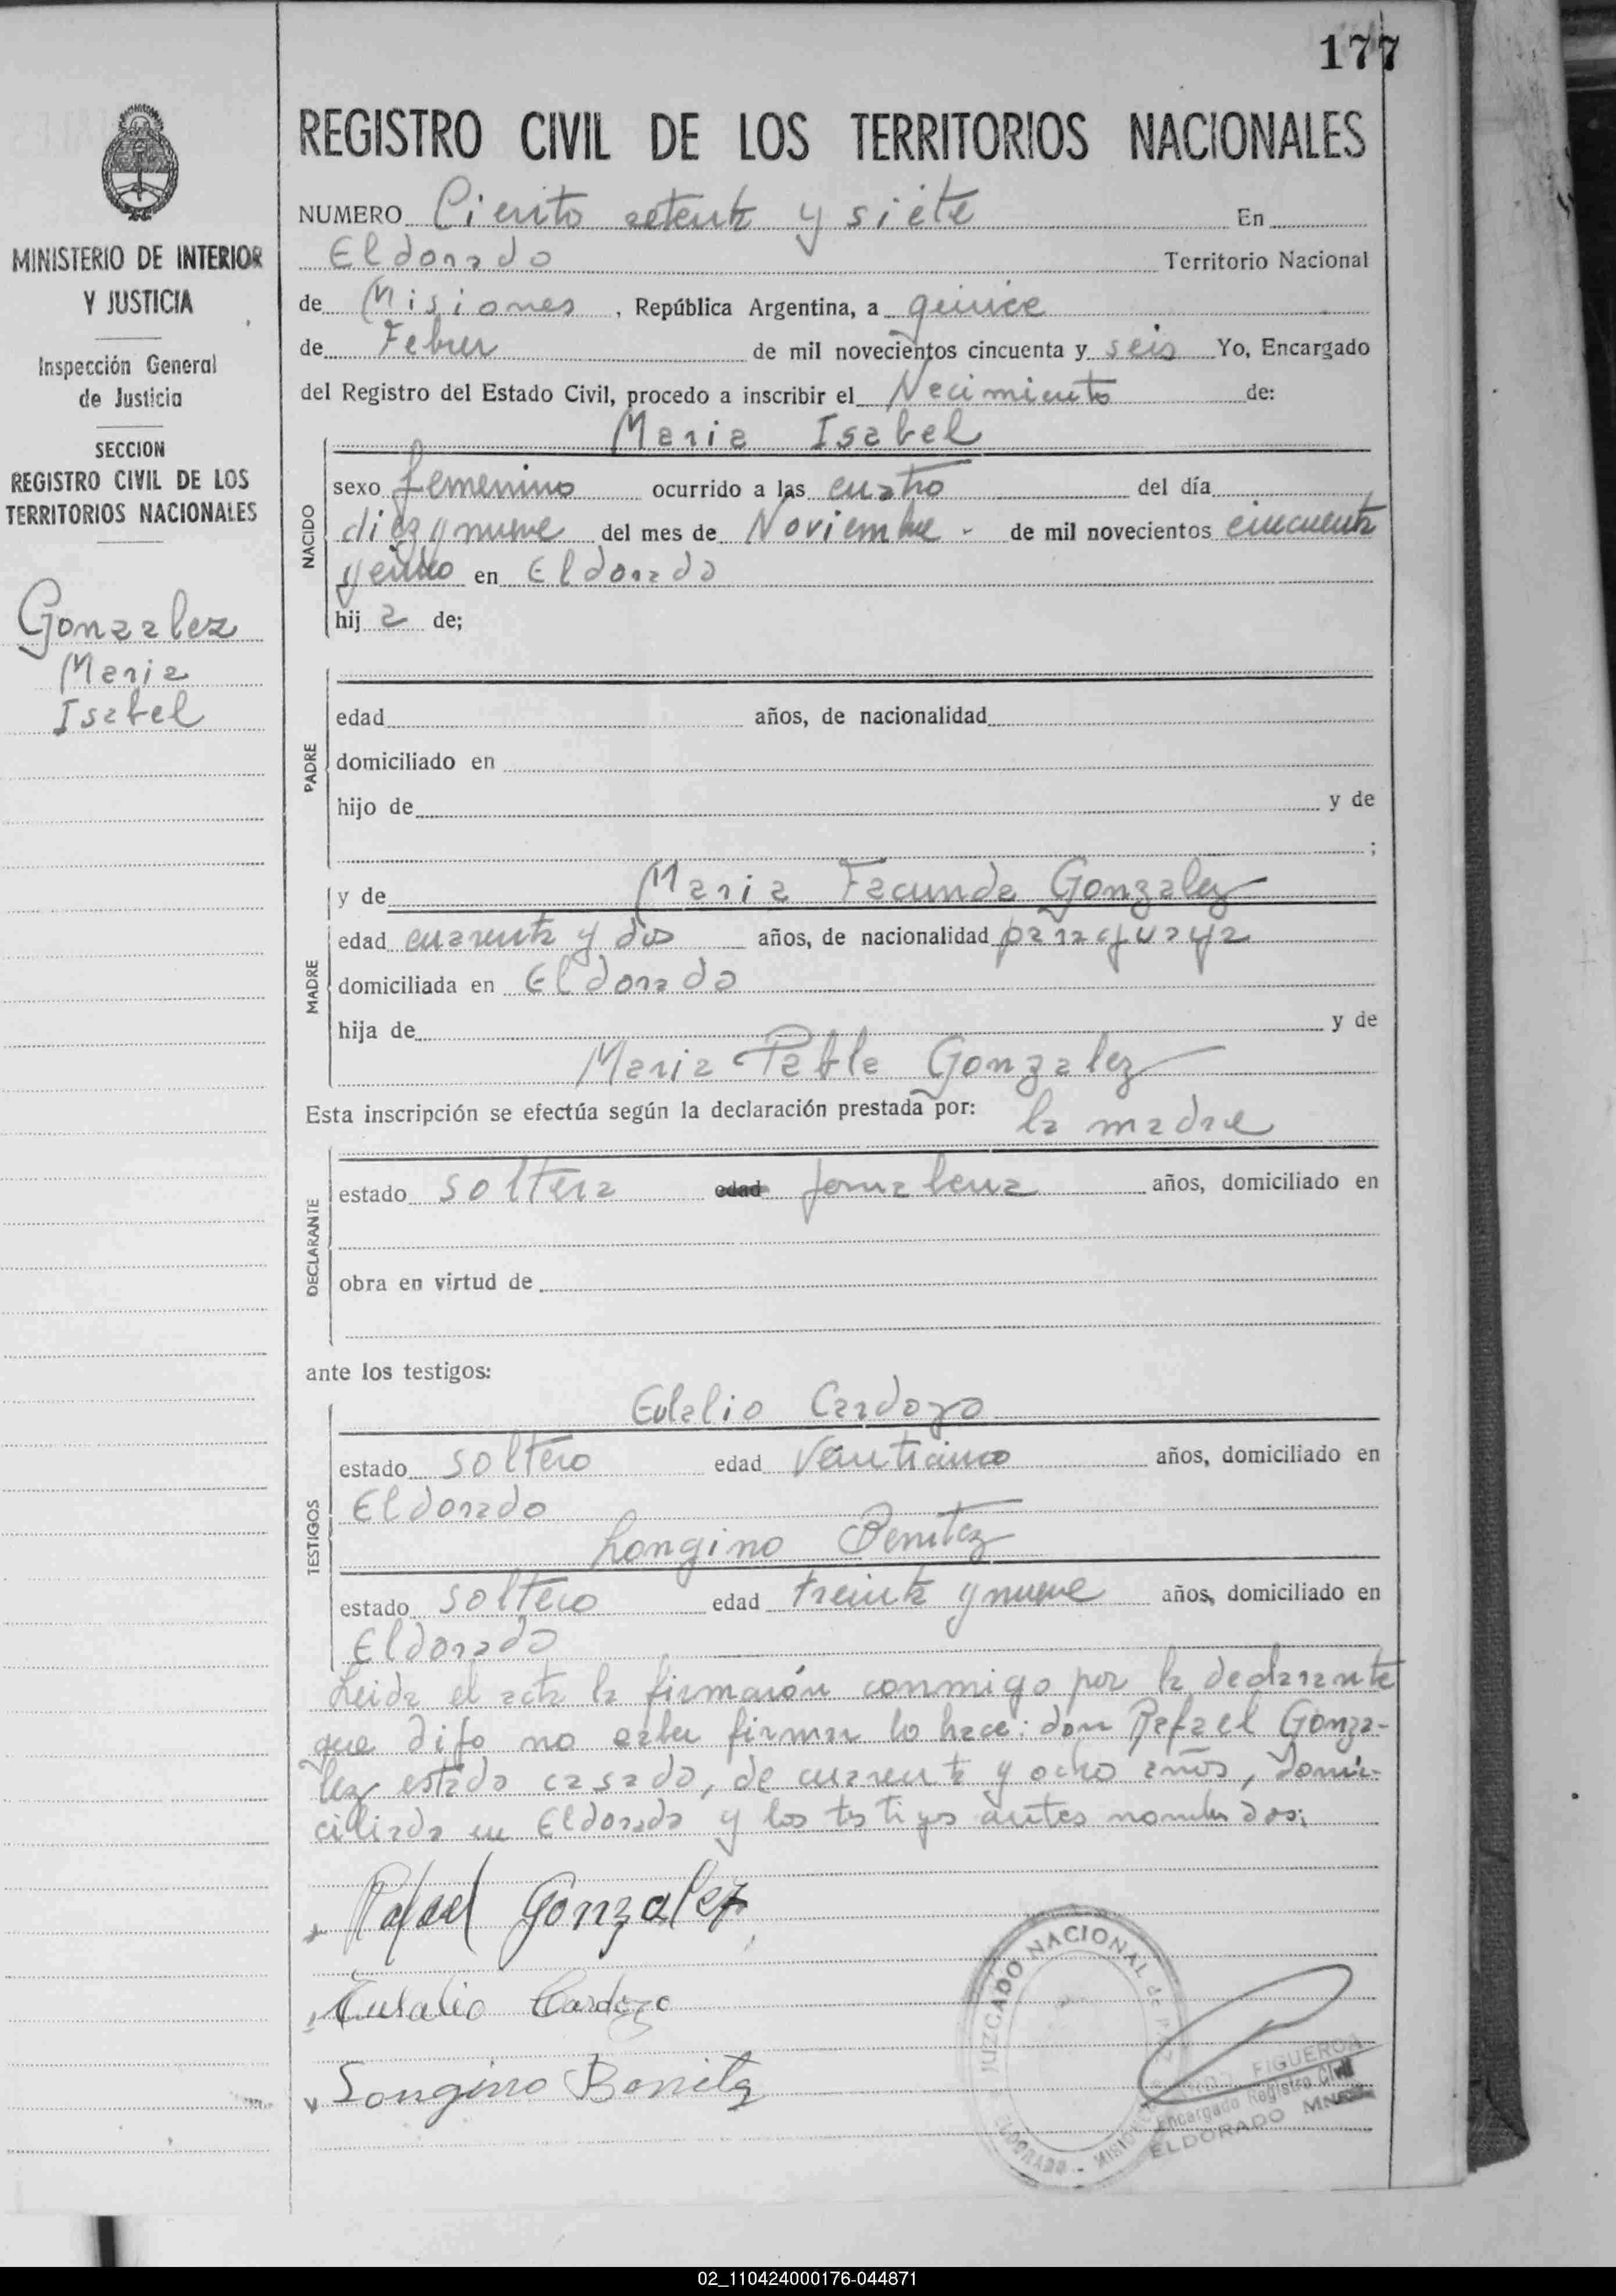 177
REGISTRO CIVIL DE LOS TERRITORIOS NACIONALES
NUMERO Ciento setenta y siete En
Eldorado Territorio Nacional
de Misiones, República Argentina, a quince
de Febrer de mil novecientos cincuenta y seis Yo, Encargado
del Registro del Estado Civil, procedo a inscribir el Nacimiento de:
Maria Isabel
NACIDO
sexo femenino ocurrido a las cuatro del día
diez y nueve del mes de Noviembre - de mil novecientos cincuenta
y en Eldorado
hij a de;
MINISTERIO DE INTERIOR
Y JUSTICIA
Inspección General
de Justicia
SECCION
REGISTRO CIVIL DE LOS
TERRITORIOS NACIONALES
Gonzalez
Maria
Isabel
PADRE
edad años, de nacionalidad
domiciliado en
hijo de y de
;
MADRE
y de Maria Facunda Gonzalez
edad cuarenta y dos años, de nacionalidad paraguaya
domiciliada en Eldorado
hija de y de
Maria Pabla Gonzalez
Esta inscripción se efectúa según la declaración prestada por: la madre
DECLARANTE
estado soltera edad años, domiciliado en
obra en virtud de
ante los testigos:
TESTIGOS
Eulalio Cardozo
estado soltero edad años, domiciliado en
Eldorado
Longino Benitez
estado soltero edad treinta y nueve años, domiciliado en
Eldorado
Leida el acta la firmarón conmigo por la declarante
que dijo no saber firmar lo hace: don Rafael Gonza-
lez estado casado, de cuarenta y ocho años, domi-
ciliado en Eldorado y los testigos antes nombrados;
Rafael Gonzalez
Eulalio Cardozo
Longino Benitez
JUZGADO NACIONAL de PAZ
ELDORADO - MISIONES
FIGUEROA
Encargado Registro Civil
ELDORADO MNES
02_110424000176-044871